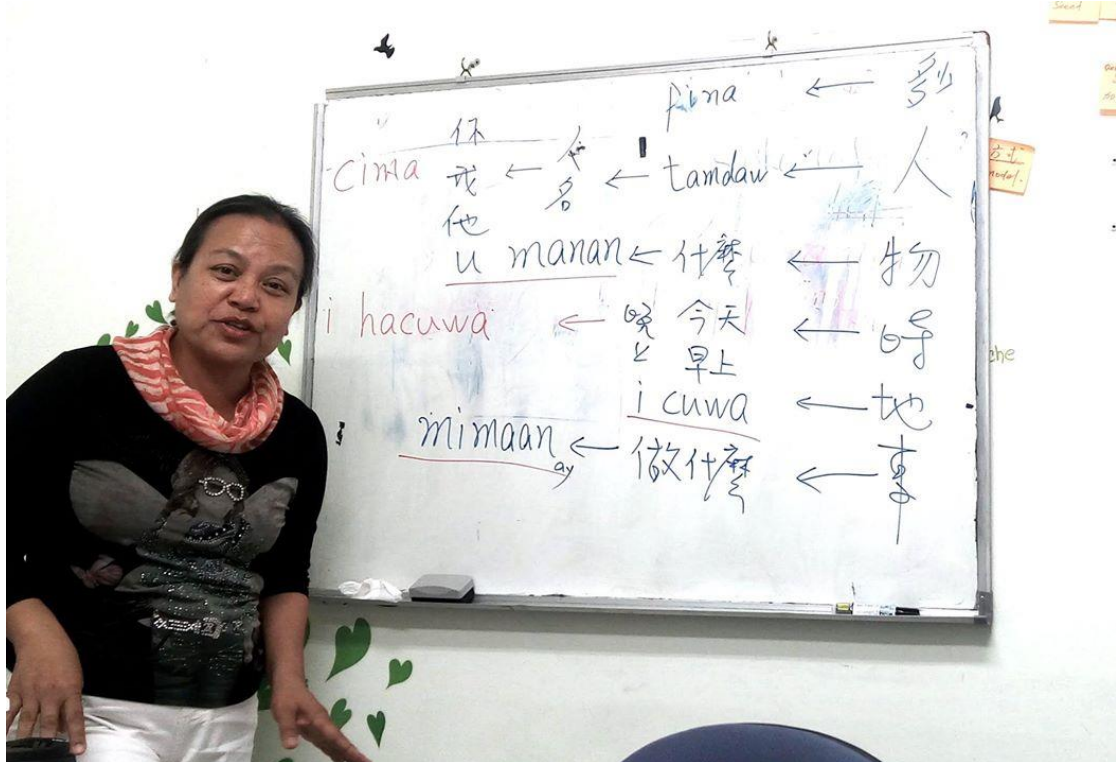 pina ← 多少
cima ← 你 我 他 ← 人名 ← tamdaw ← 人
u manan ← 什麼 ← 物
i hacuwa ← 晚上 今天 早上 ← 時
i cuwa ← 地
mimaan ay ← 做什麼 ← 事